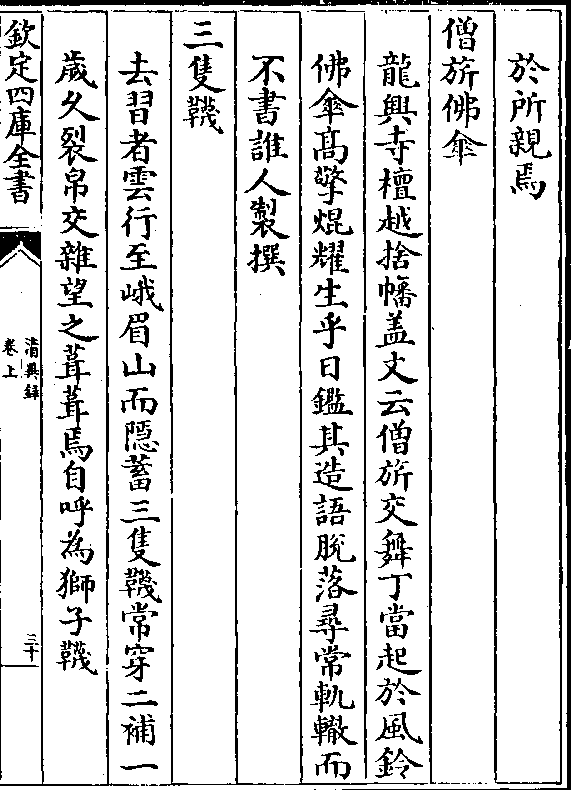 於所親焉
僧旂佛傘
龍興寺檀越捨幡盖文云僧旂交舞丁當起於風鈴
佛傘髙擎焜耀生乎日鑑其造語脫落尋常軌轍而
不書誰人製撰
三隻韈
去習者雲行至峨眉山而隱蓄三隻韈常穿二補一
歲久裂帛交雜望之葺葺焉自呼為獅子韈
欽定四庫全書
清異録
卷上
三十